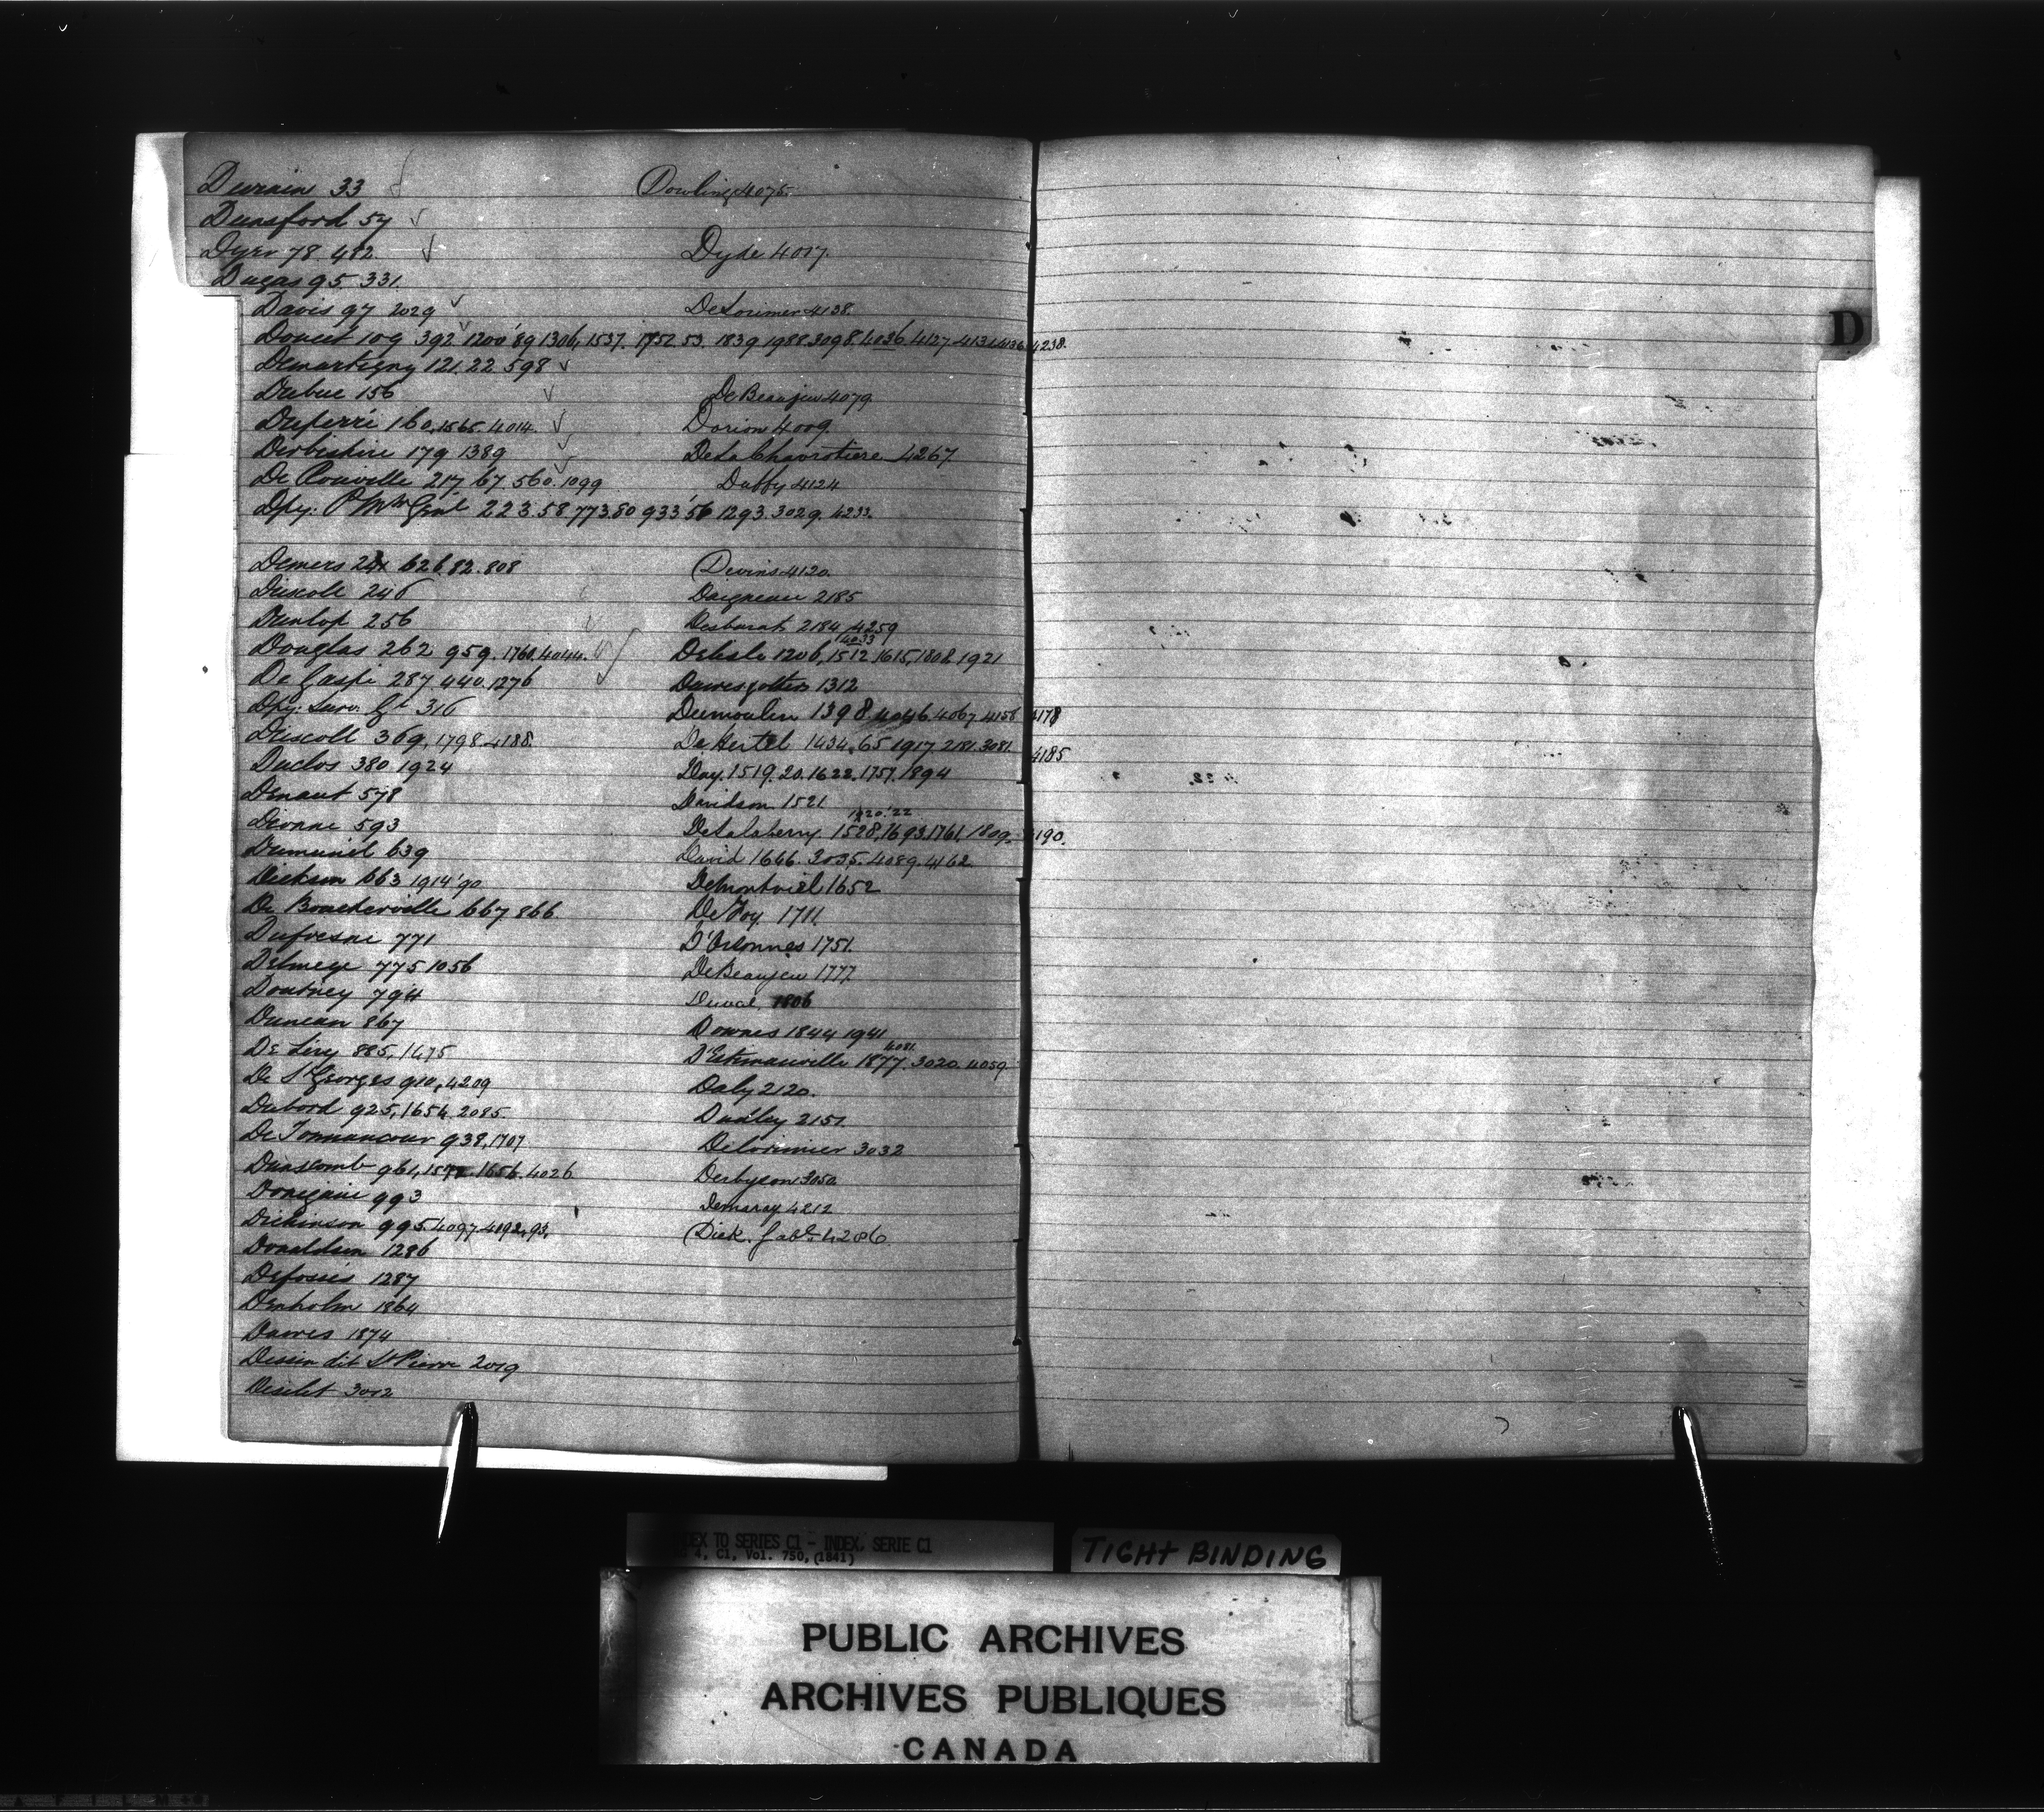 Durnin 33
Dunsford 57
Dyer 78 482
Dugas 95 331.
Davis 97 2029
Doucet 109 392 1200 '89 1306, 1537. 1752. 53. 1839 1988. 3098. 4036. 4127 4131 4136 4238.
Demartigny 121. 22. 598
Dubuc 156
Duferré 160, 1565. 4014.
Derbishire 179 1389
De Rouville 217 67. 560. 1099
Dpy. P Mr Genl 223. 58 773. 80 933 '56 1293. 3029. 4233.
Demers 241 626. 82. 808
Driscoll 246
Dunlop 256
Douglas 262 959. 1760. 4044.
De Gaspé 287 440. 1276
Dpy. Surv. Gl 316
Driscoll 369, 1798. 4188.
Duclos 380 1924
Denaut 578
Dionne 593
Dumesnil 639
Dickson 663 1914 '90
De Boucherville 667 866.
Dufresne 771
Delmege 775 1056
Doutney 794
Duncan 867
De Léry 885, 1475
De St Georges 910, 4209
Dubord 925, 1654. 2085
De Tonnancour 938, 1707
Dunscomb 961, 1656. 4026
Donegani 993
Dickinson 995. 4097 4192, 93,
Donaldson 1286
Defossés 1287
Denholm 1864
Dawes 1874
Dessin dit St Pierre 2019
Desilet 3012
Dowling 4075.
Dyde 4017.
DeLorimer 4138.
De Beaujeu 4079
Dorion 4009
De La Chavrotiere 4267
Duffy 4124
Devins 4120.
Daigneau 2185
Desbarats 2184 4259
4033
Delisle 1206, 1512 1615, 1808. 1921
Dawes 1312
Dumoulin 1398. 4046. 4067. 4156 4178
De Hertel 1434, 65 1917 2181. 3081. 4185
Day. 1519. 20. 1622. 1757. 1894
Davidson 1521
1820. '22
DeSalaberry 1528, 1693. 1761. 1809. 4190.
David 1646. 3035. 4089. 4162
Demontviel 1652
De Foy. 1711.
D'Orsonnes 1751.
De Beaujeu 1777.
Duval 1806
Downes 1844 1941
4081.
D'Estimauville 1877. 3020. 4059.
Daly 2120.
Dudley 2151
Delorimier 3032
Derbyson 3050
Demaray 4212
Dick. Gabl. 4286
D
INDEX TO SERIES C1 - INDEX, SERIE C1
4, C1, Vol. 750, (1841)
TIGHT BINDING
PUBLIC ARCHIVES
ARCHIVES PUBLIQUES
CANADA